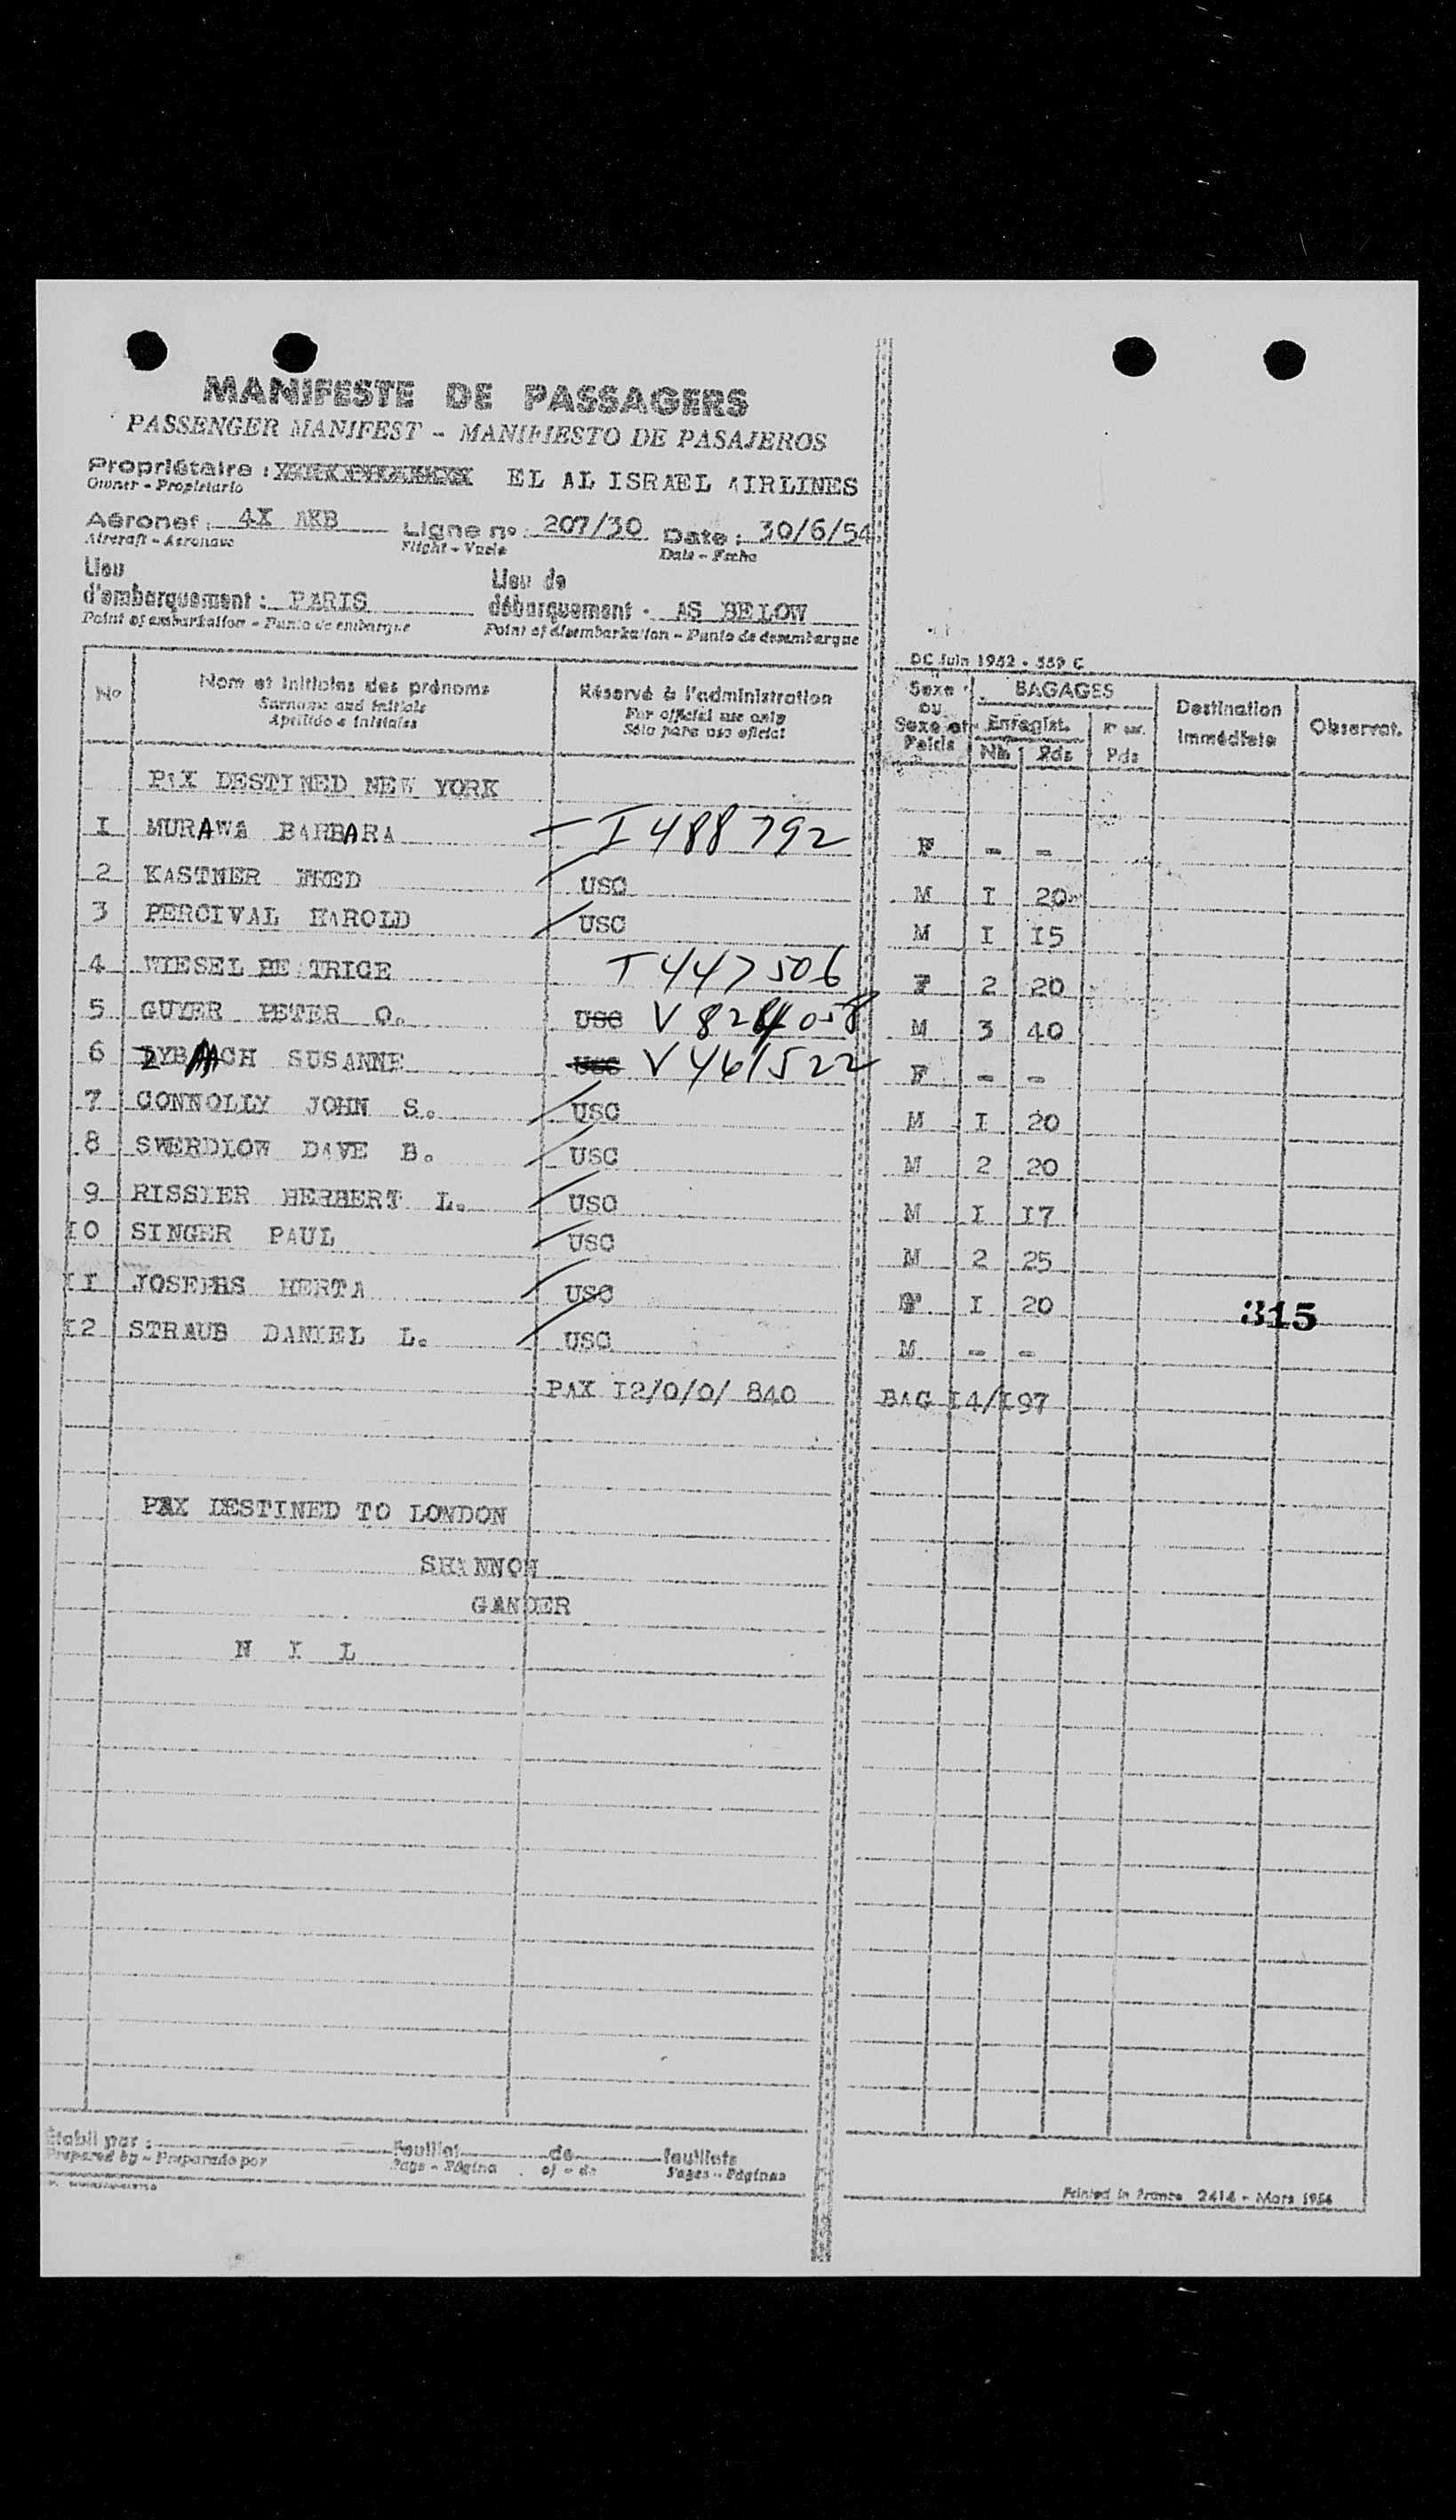 MANIFESTE DE PASSAGERS
PASSENGER MANIFEST - MANIFIESTO DE PASAJEROS
Propriétaire : EL AL ISRAEL AIRLINES
Owner - Propietario
Aéronef : 4X AKB Ligne nº : 207/30 Date : 30/6/54
Aircraft - Aeronave Flight - Vuelo Date - Fecha
Lieu d'embarquement : PARIS Lieu de débarquement : AS BELOW
Point of embarkation - Punto de embarque Point of disembarkation - Punto de desembarque
DC Juin 1952 - 559 C
Nº Nom et initiales des prénoms Réservé à l'administration Sexe ou Sexe et Poids BAGAGES Destination immédiate Observat.
Surname and initials For official use only Enregist.
Apellido e iniciales Sólo para uso oficial Nb. Pds Pds
PAX DESTINED NEW YORK
I MURAWA BARBARA I 488792 F - -
2 KASTNER FRED USC M I 20
3 PERCIVAL HAROLD USC M I I5
4 WIESEL BE TRICE T 447506 F 2 20
5 GUYER PETER O. USC V 824058 M 3 40
6 CH SUSANNE USC V 461522 F - -
7 CONNOLLY JOHN S. USC M I 20
8 SWERDLOW DAVE B. USC M 2 20
9 RISSIER HERBERT L. USC M I I7
I0 SINGER PAUL USC M 2 25
II JOSEPHS HERTA USC F I 20
315
I2 STRAUB DANIEL L. USC M - -
PAX I2/0/0/ 840 BAG I4/I97
PAX DESTINED TO LONDON
SHANNON
GANDER
N I L
Établi par : Feuillet de feuillets
Prepared by - Preparado por Page - Página of - de Pages - Páginas
Printed in France 2414 - Mars 1954